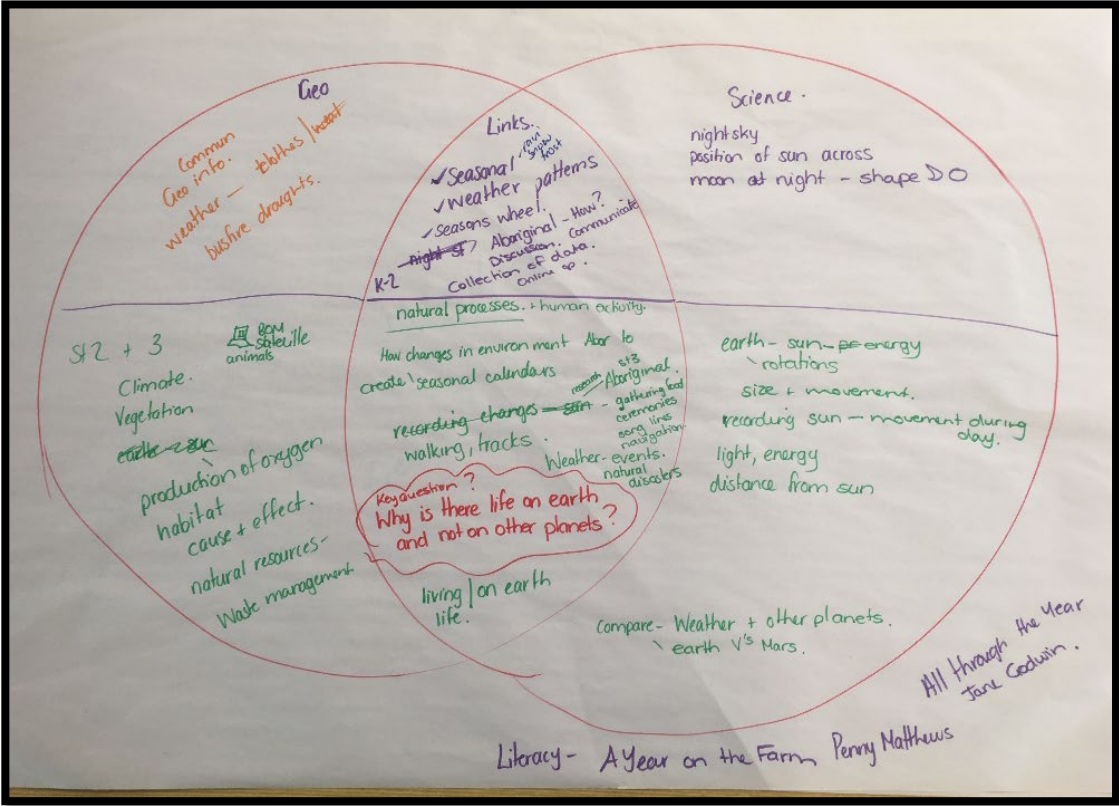 Geo
Commun
Geo info.
weather - clothes / heat
busfire draughts.
Links..
rain
snow
frost
✓ Seasonal
✓ weather patterns
✓ seasons wheel.
night st ? Aboriginal - How?
Discussion. Communicate
K-2
Collection of data.
online
Science.
nightsky
position of sun across
moon at night - shape D O
St 2 + 3
BOM
animals
Climate.
Vegetation
earth - sun
production of oxygen
habitat
cause + effect.
natural resources -
Waste management
natural processes. + human activity.
How changes in environment Abor to
create \ seasonal calendars
st3
research Aboriginal.
recording changes - sun - gathering food
ceremonies
song lines
navigation
walking, tracks.
Weather - events.
natural
disasters
Key question ?
Why is there life on earth
and not on other planets?
living / on earth
life.
earth - sun - energy
\ rotations
size + movement.
recording sun - movement during
day.
light, energy
distance from sun
compare - Weather + other planets.
\ earth V's Mars.
All through the Year
Jane Godwin.
Literacy - A Year on the Farm Penny Matthews